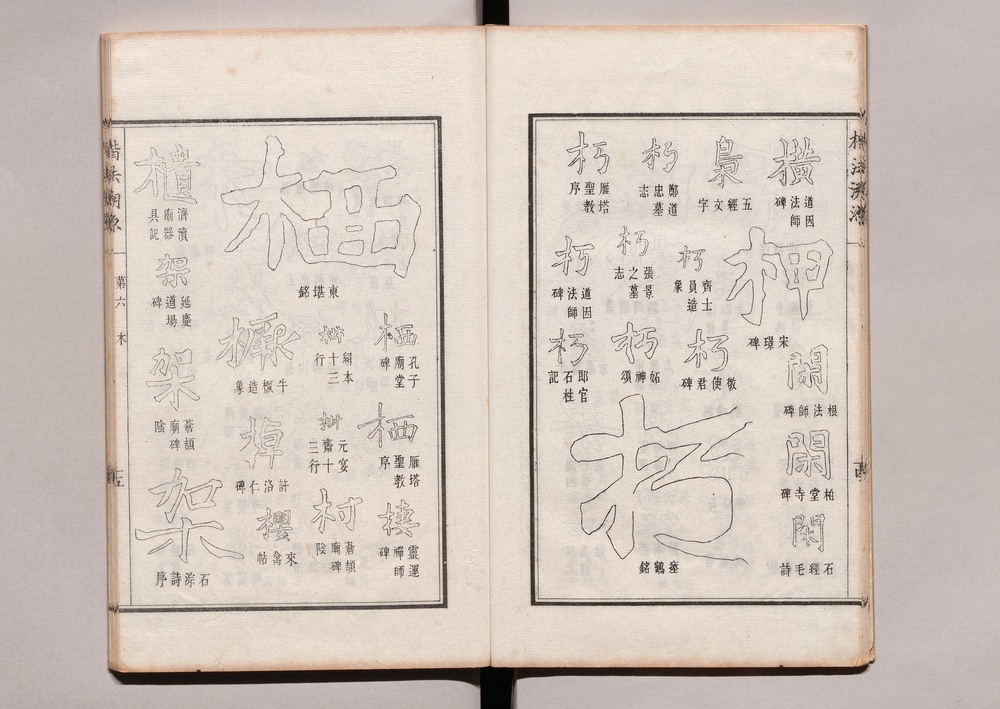 橫
道因
法師
碑
柙
宋璟碑
閑
根法師碑
閑
柏堂寺碑
閑
石經毛詩
梟
五經文字
朽
齊士
員造
象
朽
敬使君碑
朽
鄭道
忠墓
志
朽
張景
之墓
志
朽
妬神頌
朽
雁塔
聖教
序
朽
道因
法師
碑
朽
郎官
石柱
記
朽
瘞鶴銘
栖
東堪銘
栖
孔子
廟堂
碑
栖
雁塔
聖教
序
棲
靈運
禪師
碑
絹本
十三
行
元宴
齋十
三行
村
蒼頡
廟碑
陰
橛
牛橛造象
棹
許洛仁碑
櫻
來禽帖
櫃
濟瀆
廟器
具記
架
延慶
道場
碑
架
蒼頡
廟碑
陰
架
石淙詩序
楷法溯源
第六
木